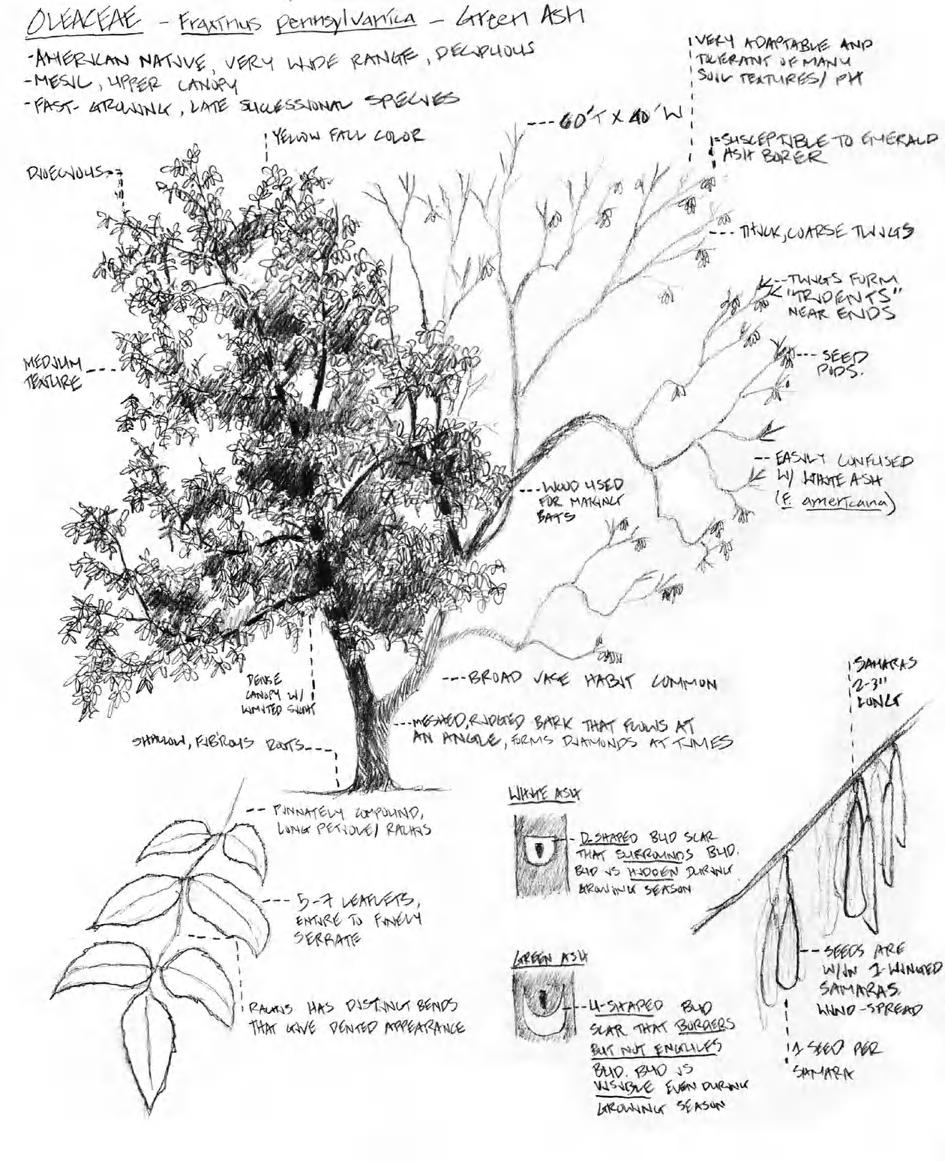 OLEACEAE - Fraxinus pennsylvanica - Green Ash
-AMERICAN NATIVE, VERY WIDE RANGE, DECIDUOUS
-MESIC, UPPER CANOPY
-FAST-GROWING, LATE SUCCESSIONAL SPECIES
YELLOW FALL COLOR
DIOECIOUS
60'T X 40'W
VERY ADAPTABLE AND
TOLERANT OF MANY
SOIL TEXTURES/ PH
SUSCEPTIBLE TO EMERALD
ASH BORER
THICK, COARSE TWIGS
TWIGS FORM
"TRIDENTS"
NEAR ENDS
MEDIUM
TEXTURE
SEED
PODS.
EASILY CONFUSED
W/ WHITE ASH
(F. americana)
WOOD USED
FOR MAKING
BATS
DENSE
CANOPY W/
LIMITED LIGHT
BROAD VASE HABIT COMMON
MESHED, RIDGED BARK THAT FLOWS AT
AN ANGLE, FORMS DIAMONDS AT TIMES
SHALLOW, FIBROUS ROOTS
SAMARAS
2-3"
LONG
PINNATELY COMPOUND,
LONG PETIOLE/ RACHIS
5-7 LEAFLETS,
ENTIRE TO FINELY
SERRATE
RACHIS HAS DISTINCT BENDS
THAT GIVE DENTED APPEARANCE
WHITE ASH
D-SHAPED BUD SCAR
THAT SURROUNDS BUD.
BUD IS HIDDEN DURING
GROWING SEASON
GREEN ASH
U-SHAPED BUD
SCAR THAT BORDERS
BUT NOT ENGULFES
BUD. BUD IS
VISIBLE EVEN DURING
GROWING SEASON
SEEDS ARE
W/IN 1-WINGED
SAMARAS,
WIND-SPREAD
1 SEED PER
SAMARA